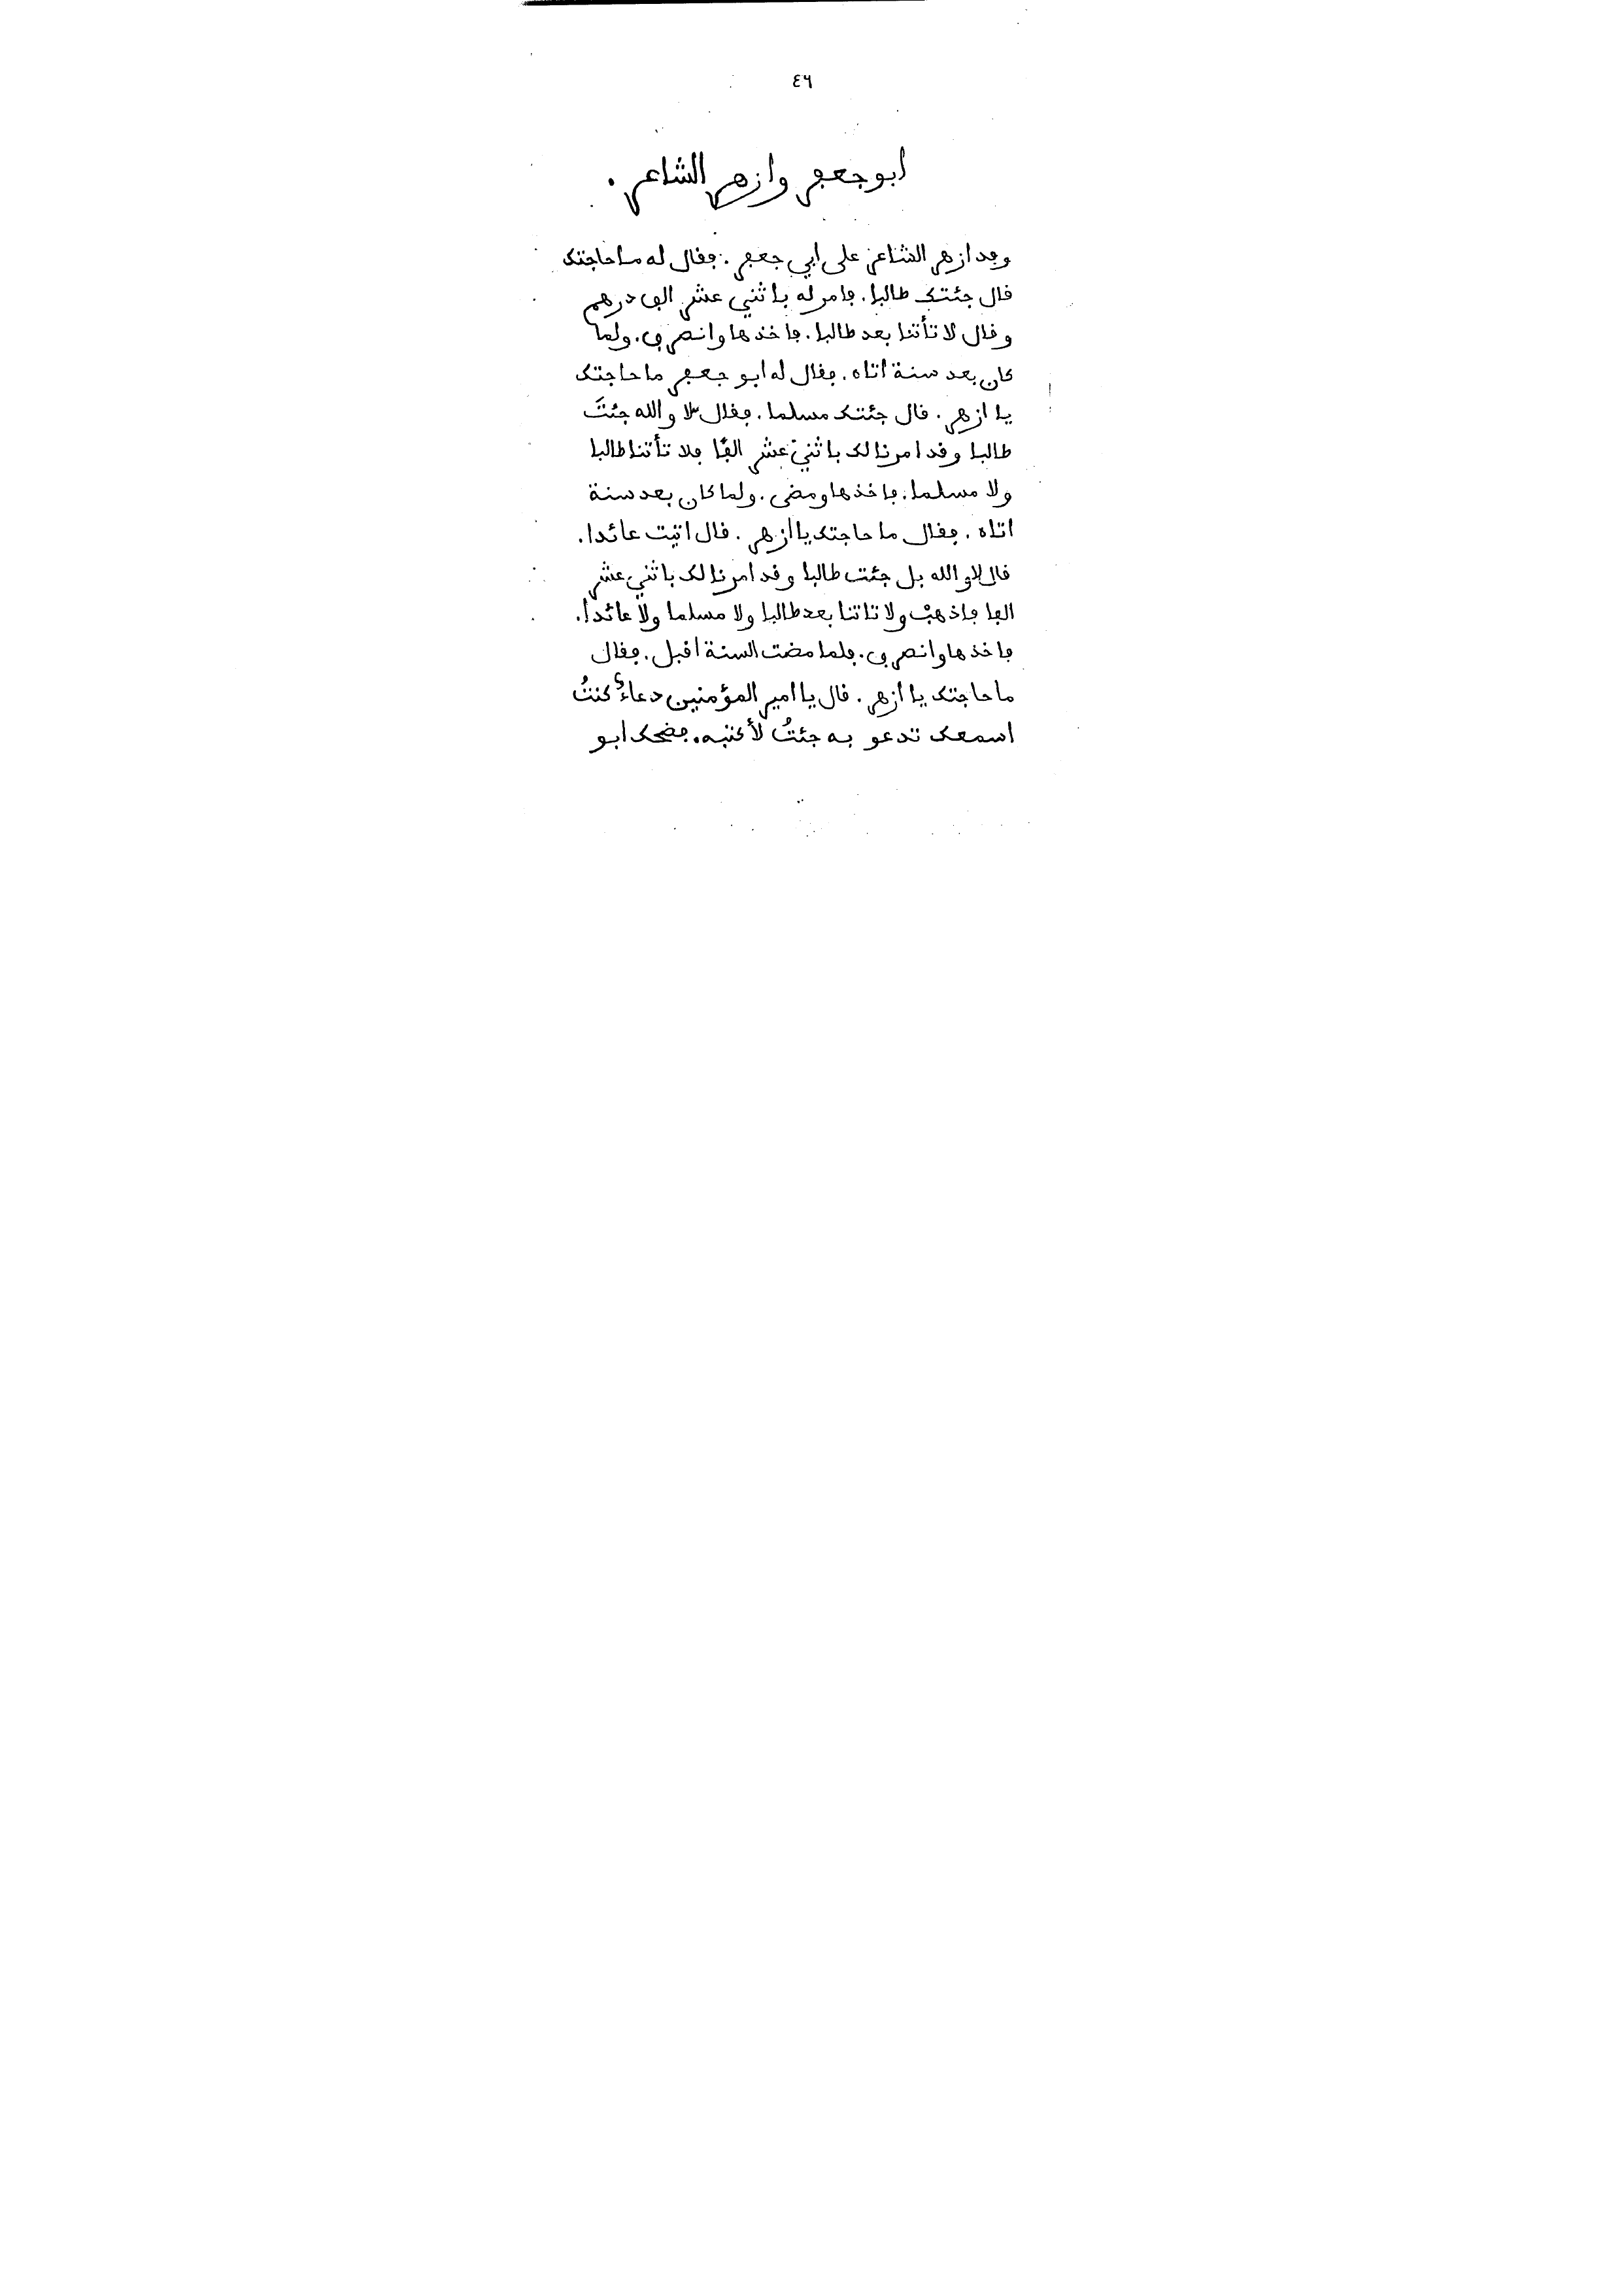 ٤٦
ابو جعفر وازهر الشاعر.
وفد ازهر الشاعر على ابي جعفر. فقال له ما حاجتك
قال جئتك طالبا. فامر له باثني عشر الف درهم
وقال لا تأتنا بعد طالبا. فاخذها وانصرف. ولما
كان بعد سنة اتاه. فقال له ابو جعفر ما حاجتك
يا ازهر. قال جئتك مسلما. فقال لا والله جئتَ
طالبا وقد امرنا لك باثنيْ عشر الفًا فلا تأتنا طالبا
ولا مسلما. فاخذها ومضى. ولما كان بعد سنة
اتاه. فقال ما حاجتك يا ازهر. قال اتيت عائدا.
قال لا والله بل جئت طالبا وقد امرنا لك باثني عشر
الفا فاذهبْ ولا تاتنا بعد طالبا ولا مسلما ولا عائدا.
فاخذها وانصرف. فلما مضت السنة اقبل. فقال
ما حاجتك يا ازهر. قال يا امير المؤمنين دعاءٌ كنتُ
اسمعك تدعو به جئتُ لأكتبه. فضحك ابو